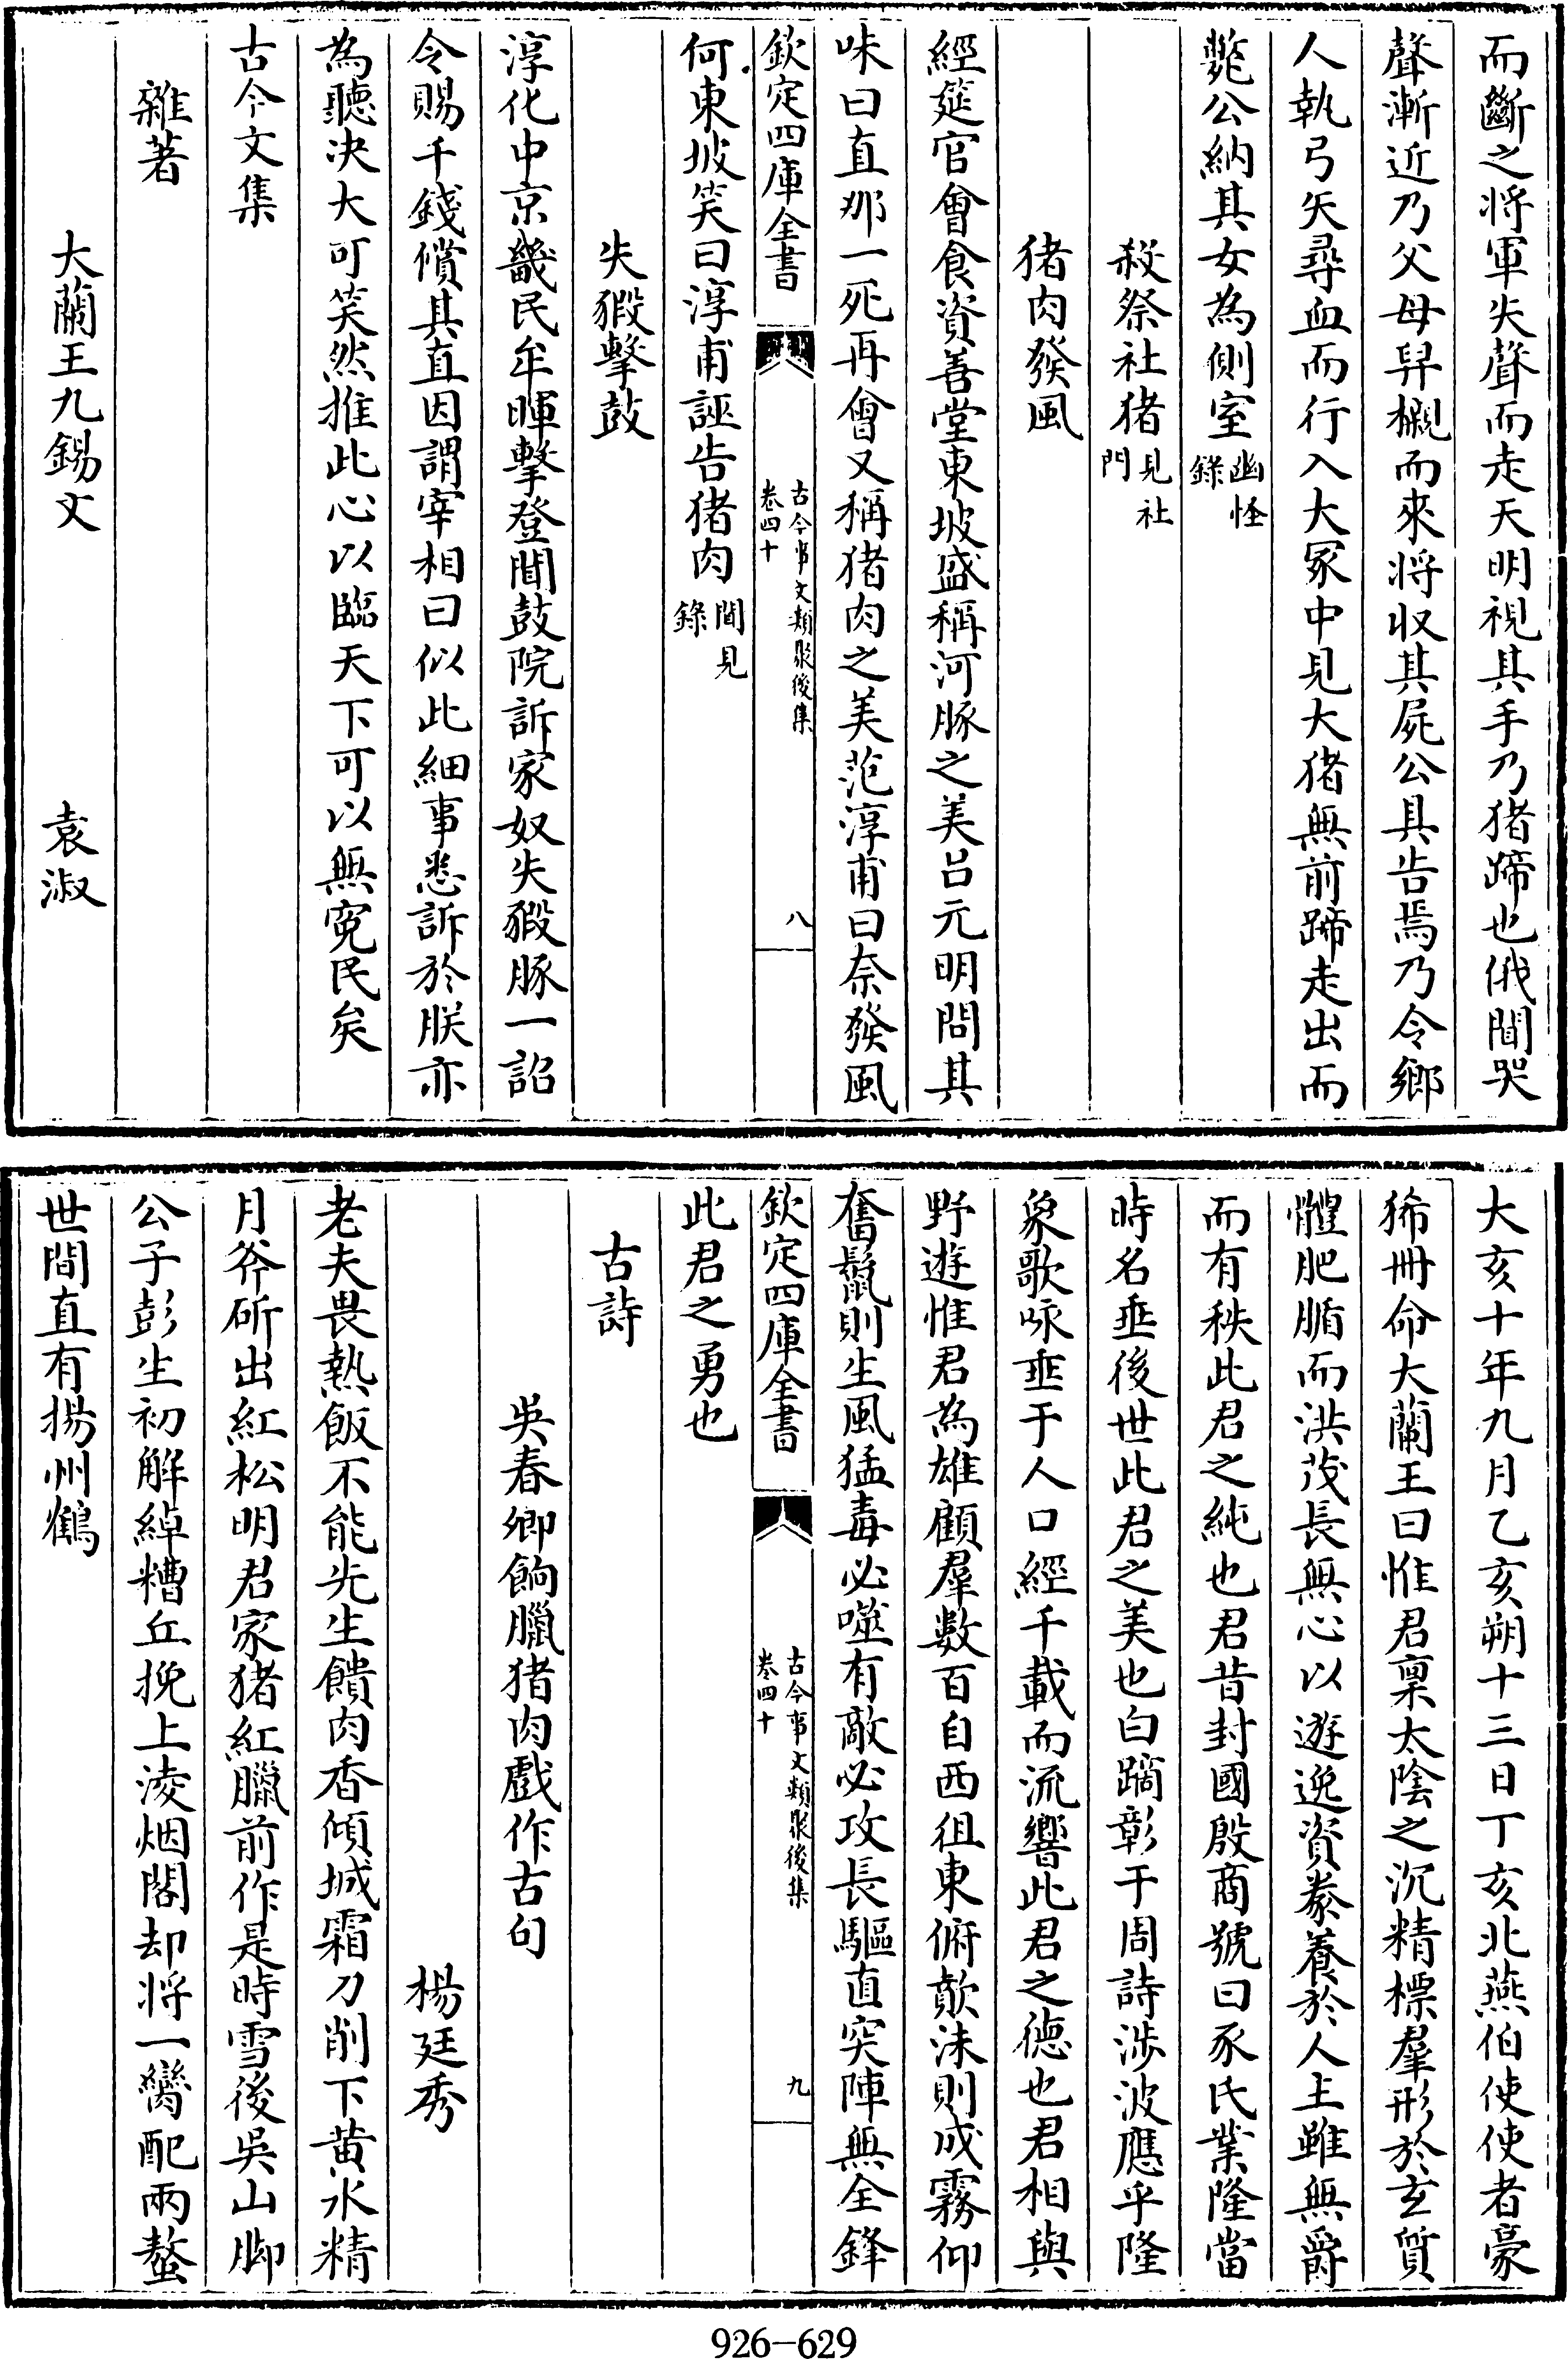 而斷之将軍失聲而走天明視其手乃猪蹄也俄聞哭
聲漸近乃父母舁櫬而來将収其屍公具告焉乃令鄉
人執弓矢尋血而行入大冢中見大猪無前蹄走出而
斃公納其女為側室幽怪錄
殺祭社猪見社門
猪肉發風
經筵官會食資善堂東坡盛稱河豚之美呂元明問其
味曰直那一死再會又稱猪肉之美范淳甫曰奈發風
欽定四庫全書
古今事文類聚後集
卷四十
八
何東坡笑曰淳甫誣告猪肉聞見錄
失豭擊鼓
淳化中京畿民牟暉擊登聞鼓院訴家奴失豭豚一詔
令賜千錢償其直因謂宰相曰似此細事悉訴於朕亦
為聽决大可笑然推此心以臨天下可以無寃民矣
古今文集
雜著
大蘭王九錫文 袁淑
大亥十年九月乙亥朔十三日丁亥北燕伯使使者豪
狶冊命大蘭王曰惟君稟太陰之沉精標羣形於玄質
體肥腯而洪茂長無心以遊逸資豢養於人主雖無爵
而有秩此君之純也君昔封國殷商號曰豕氏業隆當
時名垂後世此君之美也白蹢彰于周詩涉波應乎隆
象歌咏垂于人口經千載而流響此君之德也君相與
野遊惟君為雄顧羣數百自西徂東俯歕沫則成霧仰
奮鬛則生風猛毒必噬有敵必攻長驅直突陣無全鋒
欽定四庫全書
古今事文類聚後集
卷四十
九
此君之勇也
古詩
吳春卿餉臘猪肉戲作古句
楊廷秀
老夫畏熱飯不能先生饋肉香傾城霜刀削下黄水精
月斧斫出紅松明君家猪紅臘前作是時雪後吳山脚
公子彭生初解綽糟丘挽上淩烟閣却将一臠配兩螯
世間直有揚州鶴
926-629